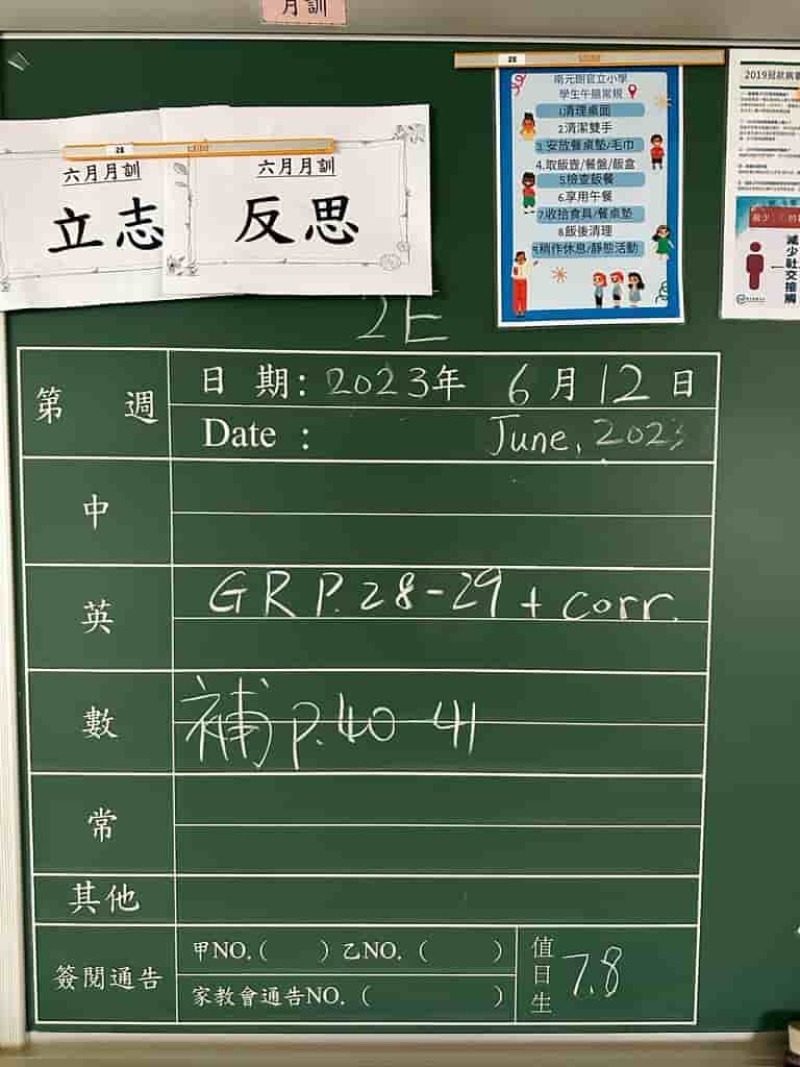 月訓
六月月訓
立志
六月月訓
反思
南元朗官立小學
學生午膳常規
1.清理桌面
2.清潔雙手
3.安放餐桌墊/毛巾
4.取飯壺/餐盤/飯盒
5.檢查飯餐
6.享用午餐
7.收拾食具/餐桌墊
8.飯後清理
9.稍作休息/靜態活動
減少社交接觸
2E
第 週
日 期: 2023年 6月12日
Date : June, 2023
中
英 GR P.28-29 + corr.
數 補 p.40-41
常
其他
簽閱通告
甲NO.( ) 乙NO.( )
家教會通告NO.( )
值日生 7.8